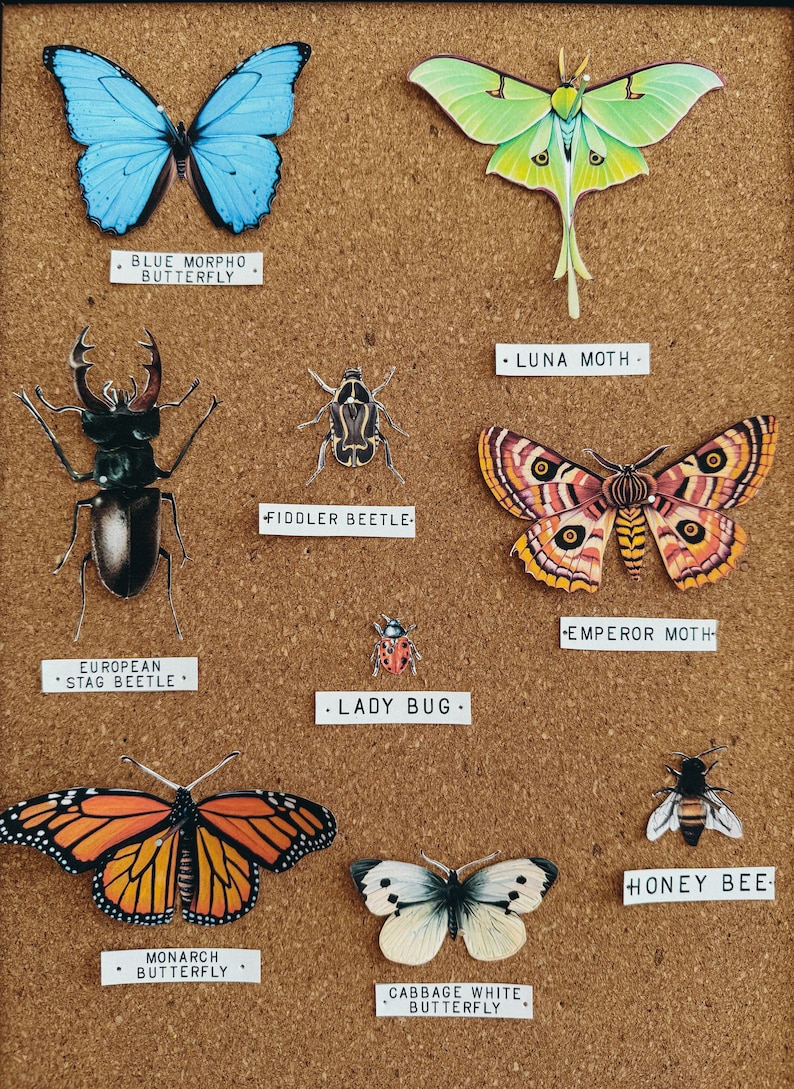 BLUE MORPHO
BUTTERFLY
LUNA MOTH
FIDDLER BEETLE
EMPEROR MOTH
EUROPEAN
STAG BEETLE
LADY BUG
HONEY BEE
MONARCH
BUTTERFLY
CABBAGE WHITE
BUTTERFLY